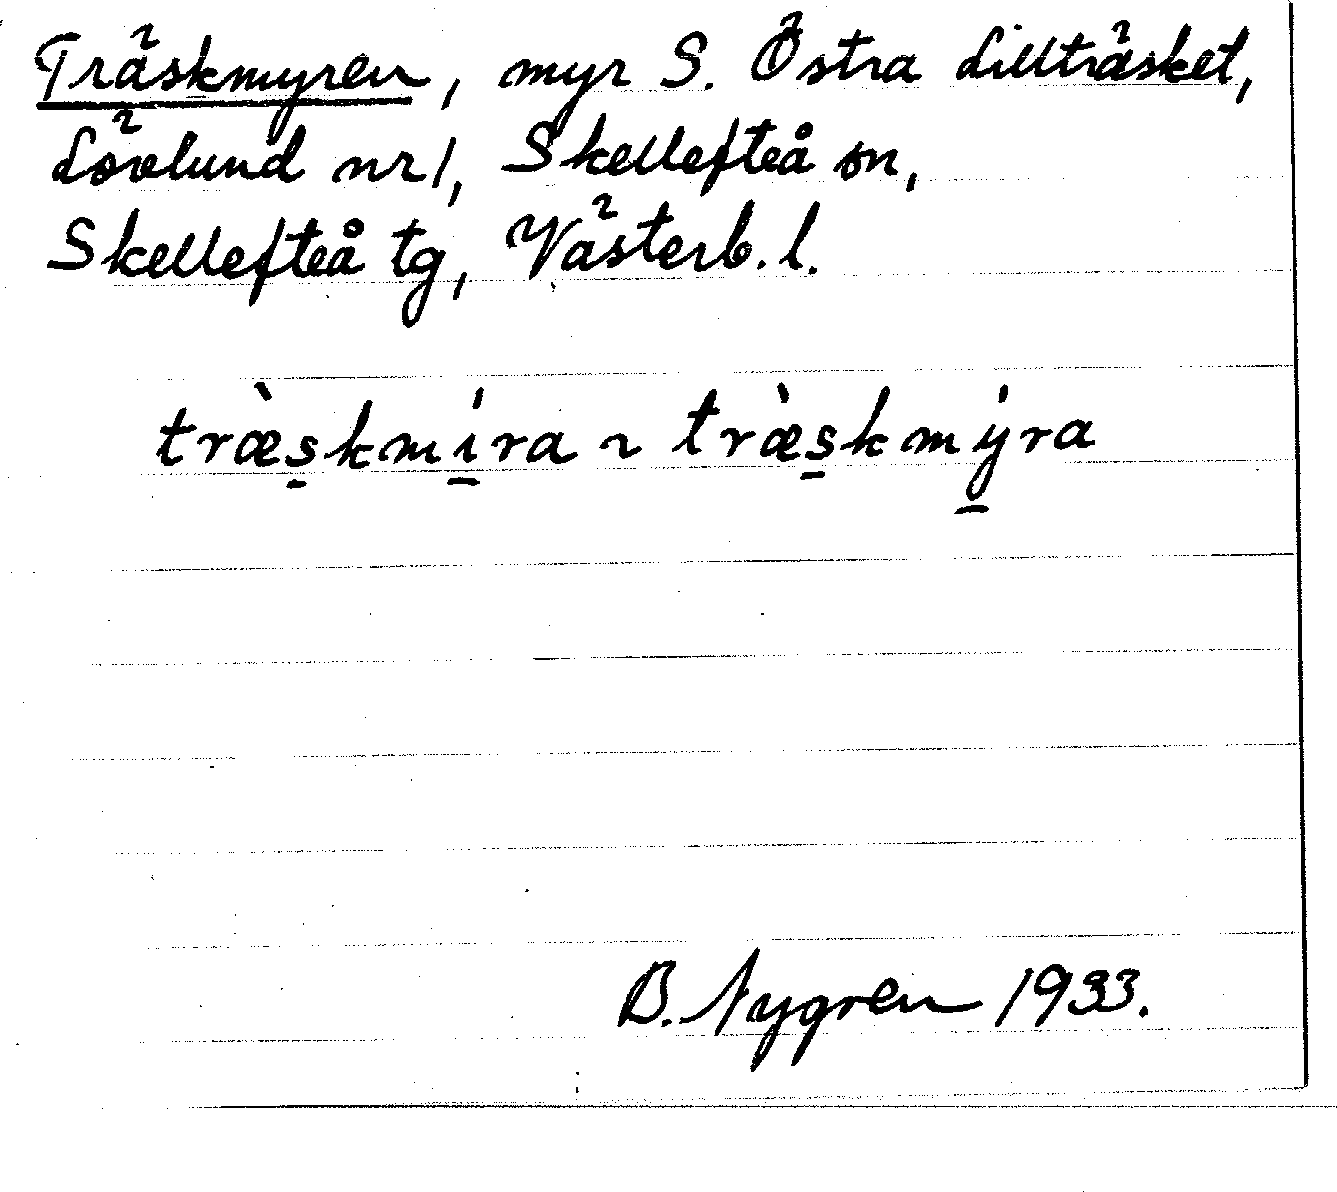 Träskmyren, myr S. Östra Lillträsket,
Lövlund nr 1, Skellefteå sn,
Skellefteå tg, Västerb. l.
træ̀s̠kmí̠ra ~ træ̀s̠kmý̠ra
B. Nygren 1933.